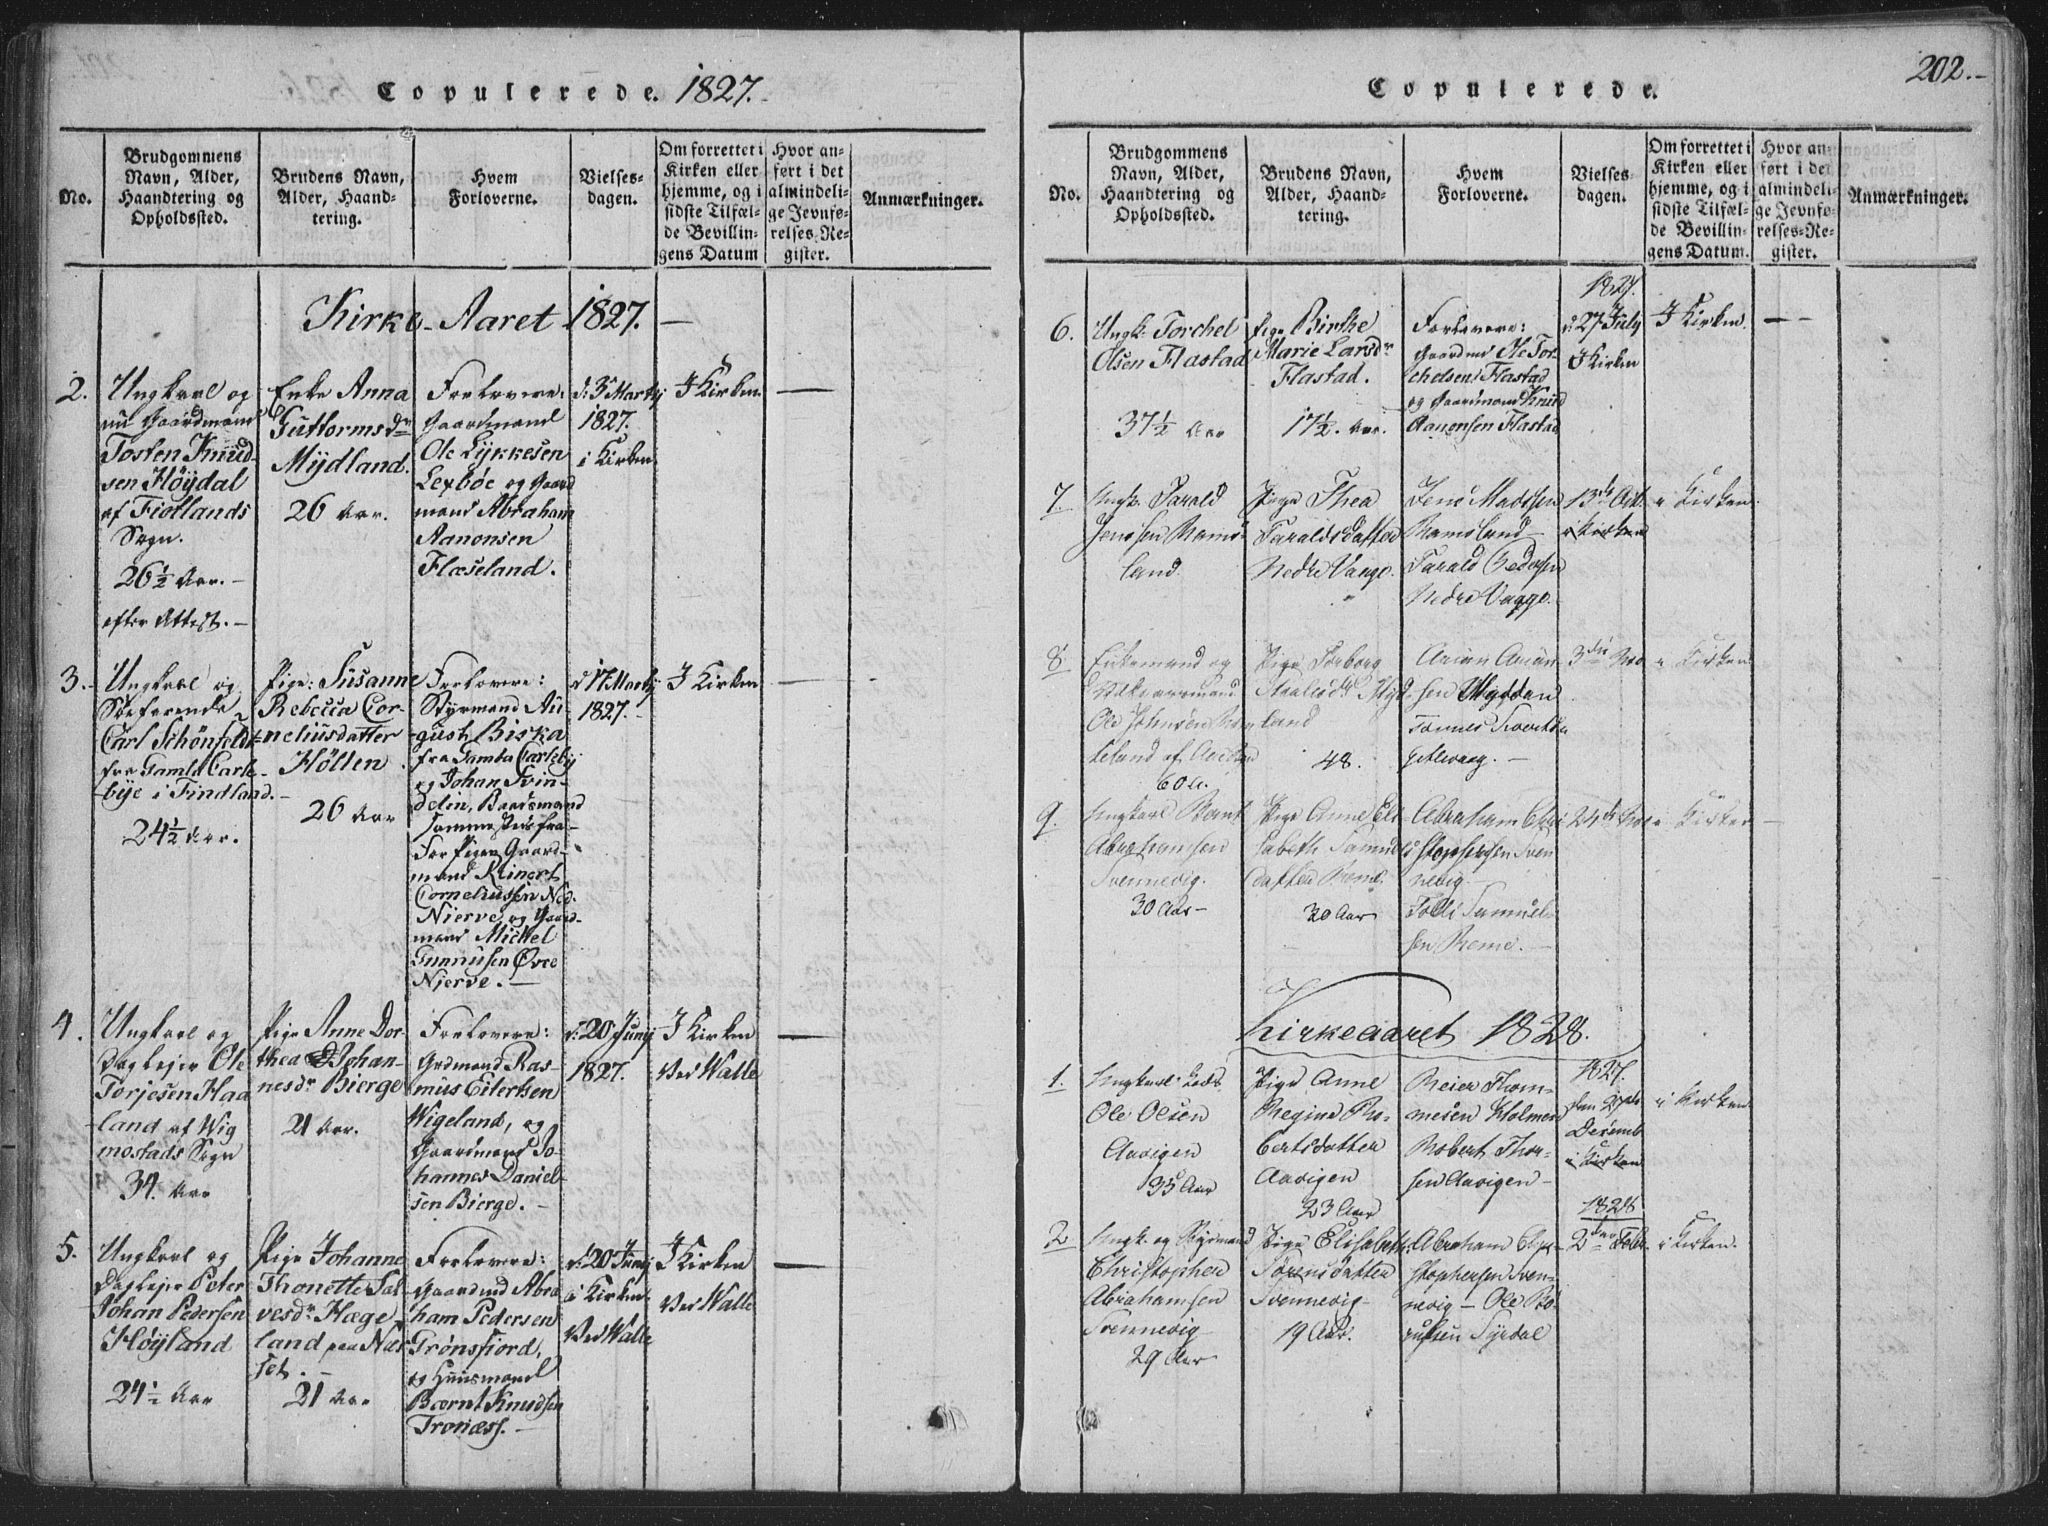 Copulerede. 1827.
No.
Brudgommens
Navn, Alder,
Haandtering og
Opholdssted.
Brudens Navn,
Alder, Haand-
tering.
Hvem
Forloverne.
Vielses-
dagen.
Om forrettet i
Kirken eller
hjemme, og i
sidste Tilfæl-
de Bevillin-
gens Datum
Hvor an-
ført i det
almindeli-
ge Jevnfø-
relses-Re-
gister.
Anmærkninger.
Kirke-Aaret 1827.
2.
Ungkarl og
nu Gaardmand
Tosten Knud-
sen Höydal
af Fiotlands
Sogn.
26½ Aar.-
efter Attest.-
Enke Anna
Guttormsdr
Mydland.
26 Aar.
Forlovere:
Gaardmand
Ole Lykkesen
Lexböe og Gaard
mand Abraham
Aanonsen
Flæseland.
d: 3 Martij
1827.
i Kirken
I Kirken
3.-
Ungkarl og
Søefarende
Carl Schönfeldt
fra Gamla Carle-
bÿe i Findland.-
24½ Aar.
Pige: Susanne
Rebecca Cor-
neliusdatter
Höllen
26 Aar
Forlovere:
Styrmand Au-
gust Biska
fra Gamla Carleby
og Johan Svin-
delin, Baadsmand
Sammesteds fra-
For Pigen Gaard-
mand Reinert
Corneliussen Ned.
Nierve, og Gaard-
mand Mickel
Gunnusen Øvre
Nierve.-
d 17 Martij
1827.-
I Kirken
4.
Ungkarl og
Daglejer Ole
Torjesen Haa
land af Wig
mostads Sogn
34. Aar
Pige Anne Dor-
thea Johan-
nesdr Bierge
21 Aar.
Forlovere:
Grdmand Ras-
mus Eilertsen
Wigeland, og
Gaardmand Jo-
hannes Daniel-
sen Bierge.-
d: 20 Junij
1827.
I Kirken
Ved Walle
5.
Ungkarl og
Daglejer Peter
Johan Pedersen
Höyland
24½ Aar
Pige Johanne
Thonette Sal-
vesdr. Hæge
land paa Næs
set.-
21 Aar
Forlovere:
Gaardmd Abra
ham Pedersen
Grönsfiord,
og Huusmand
Bærnt Knudsen
Tronæss.-
d: 20 Junij
i Kirken
Ved Walle
I Kirken
Ved Walle
202.-
Copulerede.
No.
Brudgommens
Navn, Alder,
Haandtering og
Opholdssted.
Brudens Navn,
Alder, Haand-
tering.
Hvem
Forloverne.
Vielses-
dagen.
Om forrettet i
Kirken eller
hjemme, og i
sidste Tilfæl-
de Bevillin-
gens Datum.
Hvor an-
ført i det
almindeli-
ge Jevnfø-
relses-Re-
gister.
Anmærkninger.
6.
Ungk. Torchel
Olsen Flastad
37½ Aar
Pige Birthe
Marie Larsdr
Flastad.
17½. Aar.
Forlovere:
Gaardmd Ole Tor-
chelsen Flastad
og Gaardmand Knud
Aanonsen Flastad
1827.
d 27 July
I Kirken
I Kirken
7.
Ungk. Tarald
Jenssen Rams-
land.
Pige Thea
Taraldsdatter
Nedre Vange.
Jens Madssen
Ramsland-
Tarald Pedersen
Nedre Vagge.
13de Oct.
i Kirken
i Kirken.
8
Enkemand og
Ole Johnsen
60 a.
Pige Torborg
land
48.
Arian Arian
sen Mydden
Tönnes
3die Nov
i Kirken
9.
Ungkarl Bænt
Abrahamsen
Svennevig.
30 Aar-
Pige Anne Eli-
sabeth Samuels
datter Reme.
30 Aar
Abraham Chri
stophersen Sven
nevig-
Tolli Samuel-
sen Reme.-
24de Nov
i Kirken-
Kirkeaaret 1828.
1.
Ungkarl
Ole Olsen
Aavigen
35 Aar
Pige Anne
Regine Ro-
bertsdatter
Aavigen
23 Aar
Reier Thom-
mesen Holmen
Robert Thor-
sen Aavigen-
1827.
Decemb
i Kirken
i Kirken
2
Ungk. og Styrmand
Christopher
Abrahamsen
Svennevig
29 Aar
Pige Elisabeth
Sörensdatter
Svennevig-
19 Aar.
Abraham Chri-
stophersen Sven-
nevig- Ole Bö-
Syrdal
1828
2den Febr.
i Kirken.